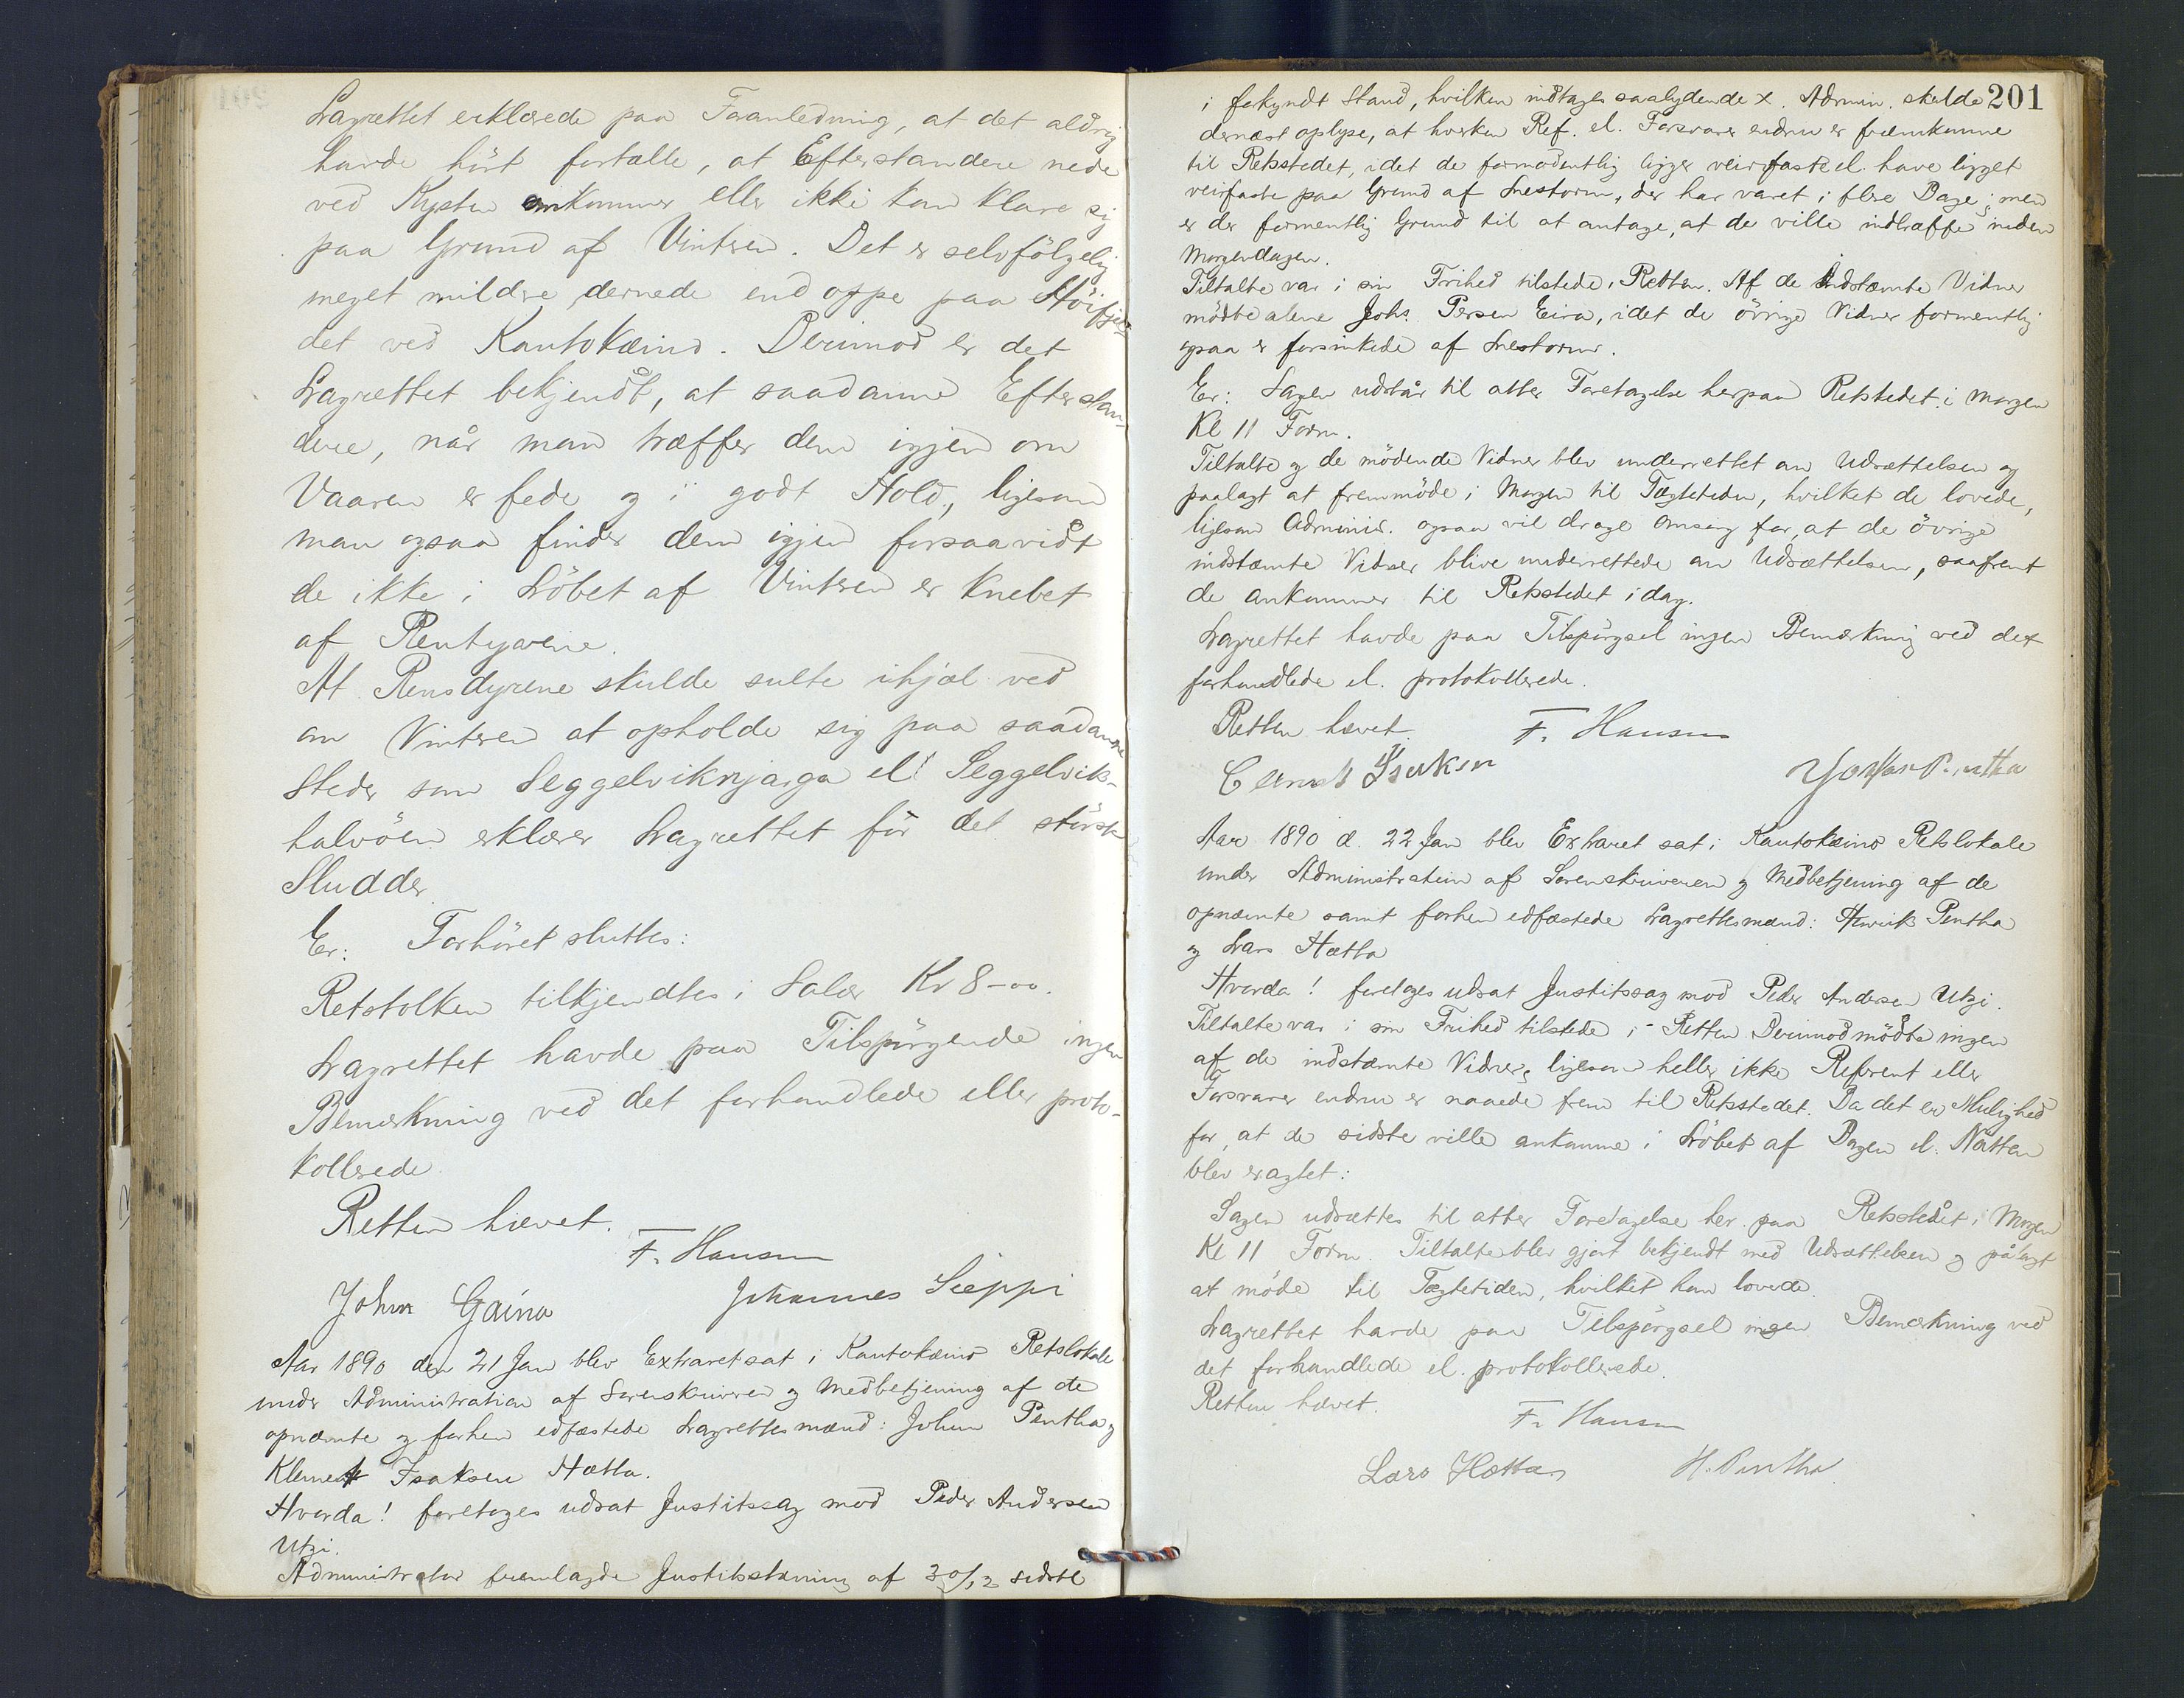 Lagrettet erklærede paa Foranledning, at det aldrig
havde hört fortælle, at Efterstandere nede
ved Kysten omkommer eller ikke kan klare sig
paa Grund af Vinteren. Det er selvfölgelig
meget mildere dernede end oppe paa Höifjel-
det ved Kautokæino. Derimod er det
Lagrettet bekjendt, at saadanne Efterstan-
dere, når man træffer dem igjen om
Vaaren er fede og i godt Hold, ligesom
man ogsaa finder dem igjen forsaavidt
de ikke i Löbet af Vinteren er knebet
af Rentyvene.
At Rensdyrene skulde sulte ihjel ved
om Vinteren at opholde sig paa saadanne
Steder som Seggelviknjarga el. Seggelvik-
halvöen erklærer Lagrettet för det störste
Sludder.
Er: Forhöret sluttes:
Retstolken tilkjendtes i Salær Kr 8-00.
Lagrettet havde paa Tilspörgende ingen
Bemærkning ved det forhandlede eller proto-
kollerede.
Retten hævet.
F. Hansen
John Gaino Johannes Sieppi
Aar 1890 den 21 Jan blev Extraret sat i Kautokæino Retslokale
under Administration af Sorenskriveren og Medbetjening af de
opnævnte og forhen edfæstede Lagrettesmænd: Johan Pentha og
Klemet Isaksen Hætta.
Hvorda! foretoges udsat Justitssag mod Peder Andersen
Utzi.
Administrator fremlagde Justitsstævning af 30/12 sidstl
201
i forkyndt Stand, hvilken indtages saalydende X. Admin. skulde
dernæst oplyse, at hverken Ref. el. Forsvarer endnu er fremkomne
til Retsstedet, idet de formodentlig ligger veirfaste el. have ligget
veirfaste paa Grund af Snestorm, der har varet i flere Dage; men
er der formentlig Grund til at antage, at de ville indtræffe inden
Morgendagen.
Tiltalte var i sin Frihed tilstede i Retten. Af de indstævnte Vidner
mödte alene Johs. Persen Eira, idet de övrige Vidner formentlig
ogsaa er forsinkede af Snestorm.
Er: Sagen udstår til atter Foretagelse herpaa Retstedet i Morgen
Kl 11 Form.
Tiltalte og de mödende Vidner blev underrettet om Udsættelsen og
paalagt at fremmöde i Morgen til Tægtetiden, hvilket de lovede,
ligesom Administ. ogsaa vil drage Omsorg for, at de övrige
indstævnte Vidner blive underrettede om Udsættelsen, saafremt
de ankommer til Retsstedet idag.
Lagrettet havde paa Tilspörgsel ingen Bemærkning ved det
forhandlede el. protokollerede.
Retten hævet. F. Hansen
Clemet Isaksen Johan Pentha
Aar 1890 d. 22 Jan blev Extraret sat i Kautokæino Retslokale
under Administration af Sorenskriveren og Medbetjening af de
opnævnte samt forhen edfæstede Lagrettesmænd: Henrik Pentha
og Lars Hætta
Hvorda! foretoges udsat Justitssag mod Peder Andersen Utzi.
Tiltalte var i sin Frihed tilstede i Retten Derimod mödte ingen
af de indstævnte Vidner, ligesom heller ikke Referent eller
Forsvarer endnu er naaede frem til Retsstedet. Da det er Mulighed
for, at de sidste ville ankomme i Löbet af Dagen el. Natten
blev eragtet:
Sagen udsættes til atter Foretagelse her paa Retsstedet i Morgen
Kl 11 Form. Tiltalte blev gjort bekjendt med Udsættelsen og pålagt
at möde til Tægtetiden, hvilket han lovede.
Lagrettet havde paa Tilspörgsel ingen Bemærkning ved
det forhandlede el. protokollerede.
Retten hævet.
F. Hansen
Lars Hætta H. Pentha